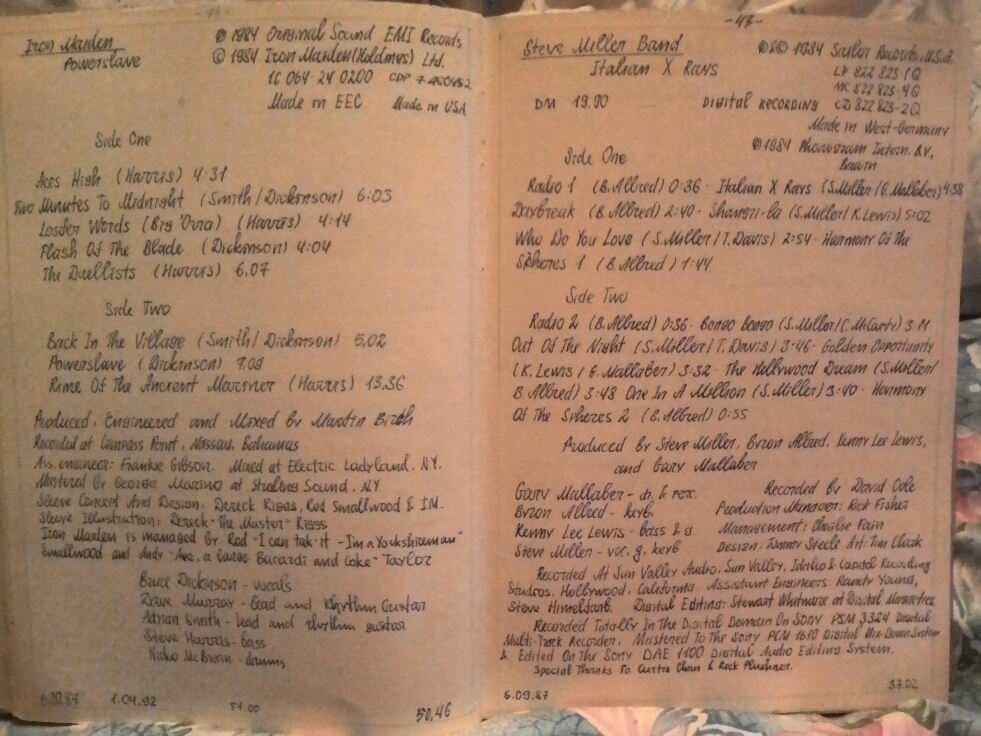 Iron Maiden
Powerslave
℗ 1984 Original Sound EMI Records
© 1984 Iron Maiden (Holdings) Ltd.
1C 064-24 0200 CDP 7 460452
Made in EEC Made in USA
Side One
Aces High (Harris) 4:31
Two Minutes To Midnight (Smith/Dickinson) 6:03
Losfer Words (Big 'Orra) (Harris) 4:14
Flash Of The Blade (Dickinson) 4:04
The Duellists (Harris) 6.07
Side Two
Back In The Village (Smith/Dickinson) 5.02
Powerslave (Dickinson) 7.09
Rime Of The Ancient Mariner (Harris) 13.36
Produced, Engineered and Mixed by Martin Birch
Recorded at Compass Point, Nassau, Bahamas
Ass. engineer: Frankie Gibson. Mixed at Electric Ladyland. N.Y.
Mastered by George Marino at Sterling Sound. N.Y.
Sleeve Concept And Design: Dereck Riggs, Rod Smallwood & I.M.
Sleeve Illustration: Dereck "The Master" Riggs
Iron Maiden is managed by Rod "I can take it - I'm a Yorkshireman"
Smallwood and Andy "Aye, a large Bacardi and Coke" Taylor
Bruce Dickinson - vocals
Dave Murray - lead and rhythm Guitar
Adrian Smith - lead and rhythm guitar
Steve Harris - bass
Nicko McBrain - drums
1.04.92
51.00
50.46
-43-
Steve Miller Band
Italian X Rays
℗ © 1984 Sailor Records, U.S.A.
LP 822 823-1Q
MC 822 823-4Q
DM 19.90 DIGITAL RECORDING CD 822 823-2Q
Made in West-Germany
℗ 1984 Phonogram Intern. B.V.,
Baarn
Side One
Radio 1 (B.Allred) 0:36 · Italian X Rays (S.Miller/G.Mallaber) 4:38
Daybreak (B.Allred) 2:40 · Shangri-La (S.Miller/K.Lewis) 5:02
Who Do You Love (S.Miller/T.Davis) 2:54 · Harmony Of The
Spheres 1 (B.Allred) 1:44
Side Two
Radio 2 (B.Allred) 0:36 · Bongo Bongo (S.Miller/C.McCarty) 3:11
Out Of The Night (S.Miller/T.Davis) 3:46 · Golden Opportunity
(K.Lewis/G.Mallaber) 3:32 · The Hollywood Dream (S.Miller/
B.Allred) 3:48 One In A Million (S.Miller) 3:40 · Harmony
Of The Spheres 2 (B.Allred) 0:55
Produced by Steve Miller, Byron Allred, Kenny Lee Lewis,
and Gary Mallaber
Gary Mallaber - dr. & perc.
Byron Allred - keyb.
Kenny Lee Lewis - bass & g.
Steve Miller - voc, g, keyb
Recorded by David Cole
Production Manager: Rick Fisher
Management: Charlie Fain
Design: Tommy Steele Art: Tim Clark
Recorded At Sun Valley Audio, Sun Valley, Idaho & Capitol Recording
Studios, Hollywood, California Assistant Engineers: Randy Young,
Steve Himelfarb. Digital Editing: Stewart Whitmore at Digital Magnetics
Recorded Totally In The Digital Domain On Sony PSM 3324 Digital
Multi-Track Recorder, Mastered To The Sony PCM 1610 Digital Mix-Down System
& Edited On The Sony DAE 1100 Digital Audio Editing System.
Special Thanks To Curtis Chan & Rick Plushner.
6.09.87
37.02